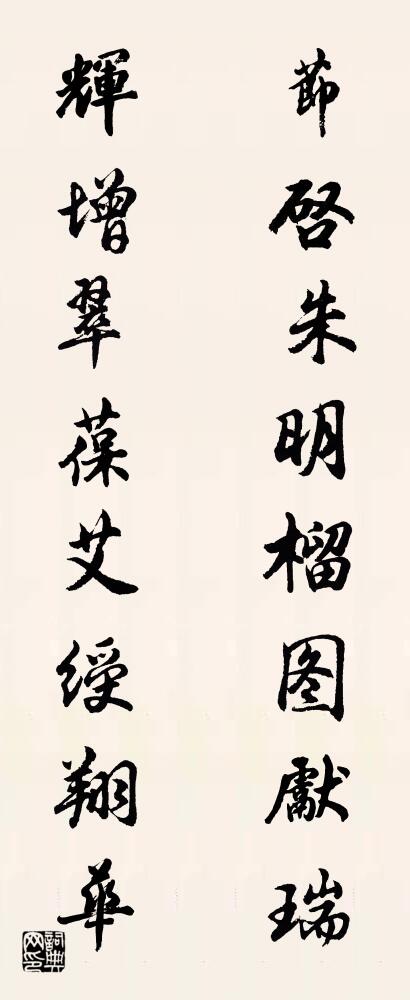 節啓朱明榴图獻瑞
輝增翠葆艾綬翔華
詞典网印